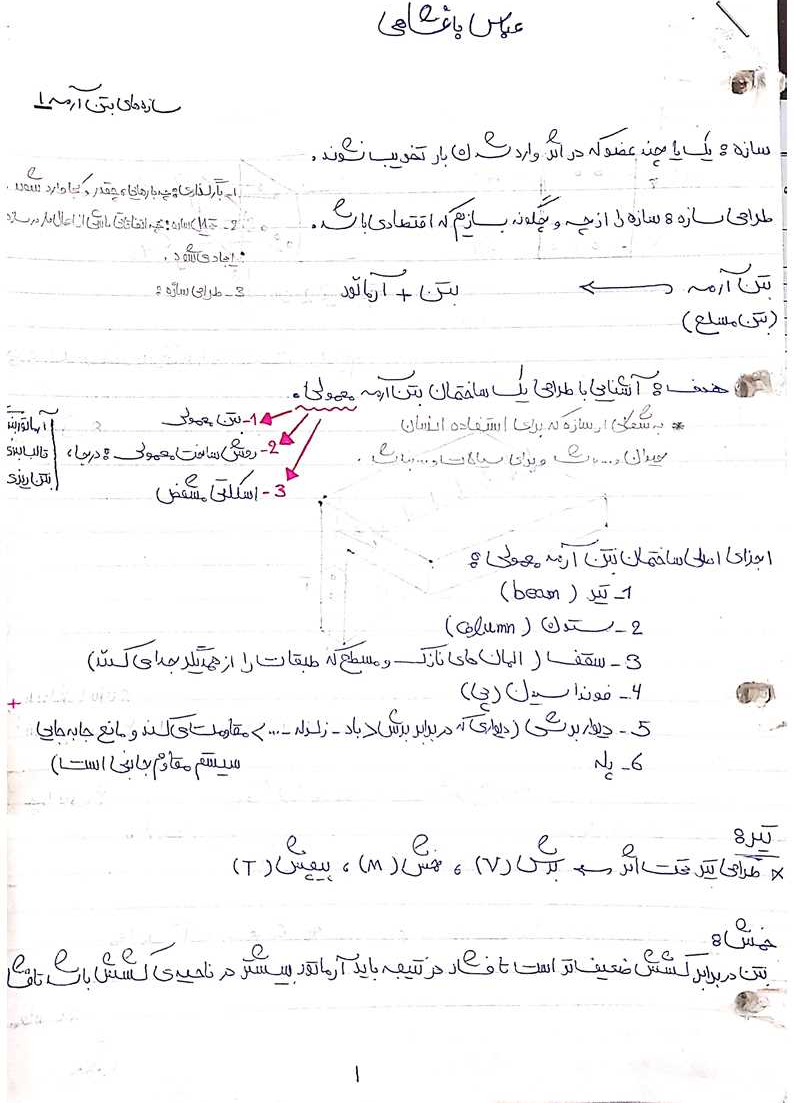 عباس باغشاهی
سازه‌های بتن آرمه 1
سازه : یک یا چند عضو که در اثر وارد شدن بار تخریب نشوند.
1- بارگذاری : چه بارهایی، چقدر و کجا وارد شود.
طراحی سازه : سازه را از چه و چگونه بسازیم که اقتصادی باشد.
2- تحلیل سازه : چه اتفاقاتی ناشی از اعمال بار در سازه
ایجاد می‌شود.
3- طراحی سازه :
بتن آرمه ← بتن + آرماتور
(بتن مسلح)
هدف : آشنایی با طراحی یک ساختمان بتن آرمه معمولی.
1- بتن معمولی
2- روش ساخت معمولی : درجا،
آرماتوربندی
قالب بندی
بتن ریزی
3- اسکلتی مشخص
* به شکلی از سازه که برای استفاده انسان
اجزای اصلی ساختمان بتن آرمه معمولی :
1- تیر (beam)
2- ستون (column)
3- سقف (المان های نازک و مسطح که طبقات را از همدیگر جدا می کنند)
4- فونداسیون (پی)
+
5- دیوار برشی (دیواری که در برابر برش < باد - زلزله - ... > مقاومت می کند و مانع جابه جایی
سیستم مقاوم جانبی است)
6- پله
تیر :
* طراحی تیر تحت اثر ← برش (V) ، خمش (M) ، پیچش (T)
خمش :
بتن در برابر کشش ضعیف تر است تا فشار در نتیجه باید آرماتور بیشتر در ناحیه ی کشش باشد تا
1